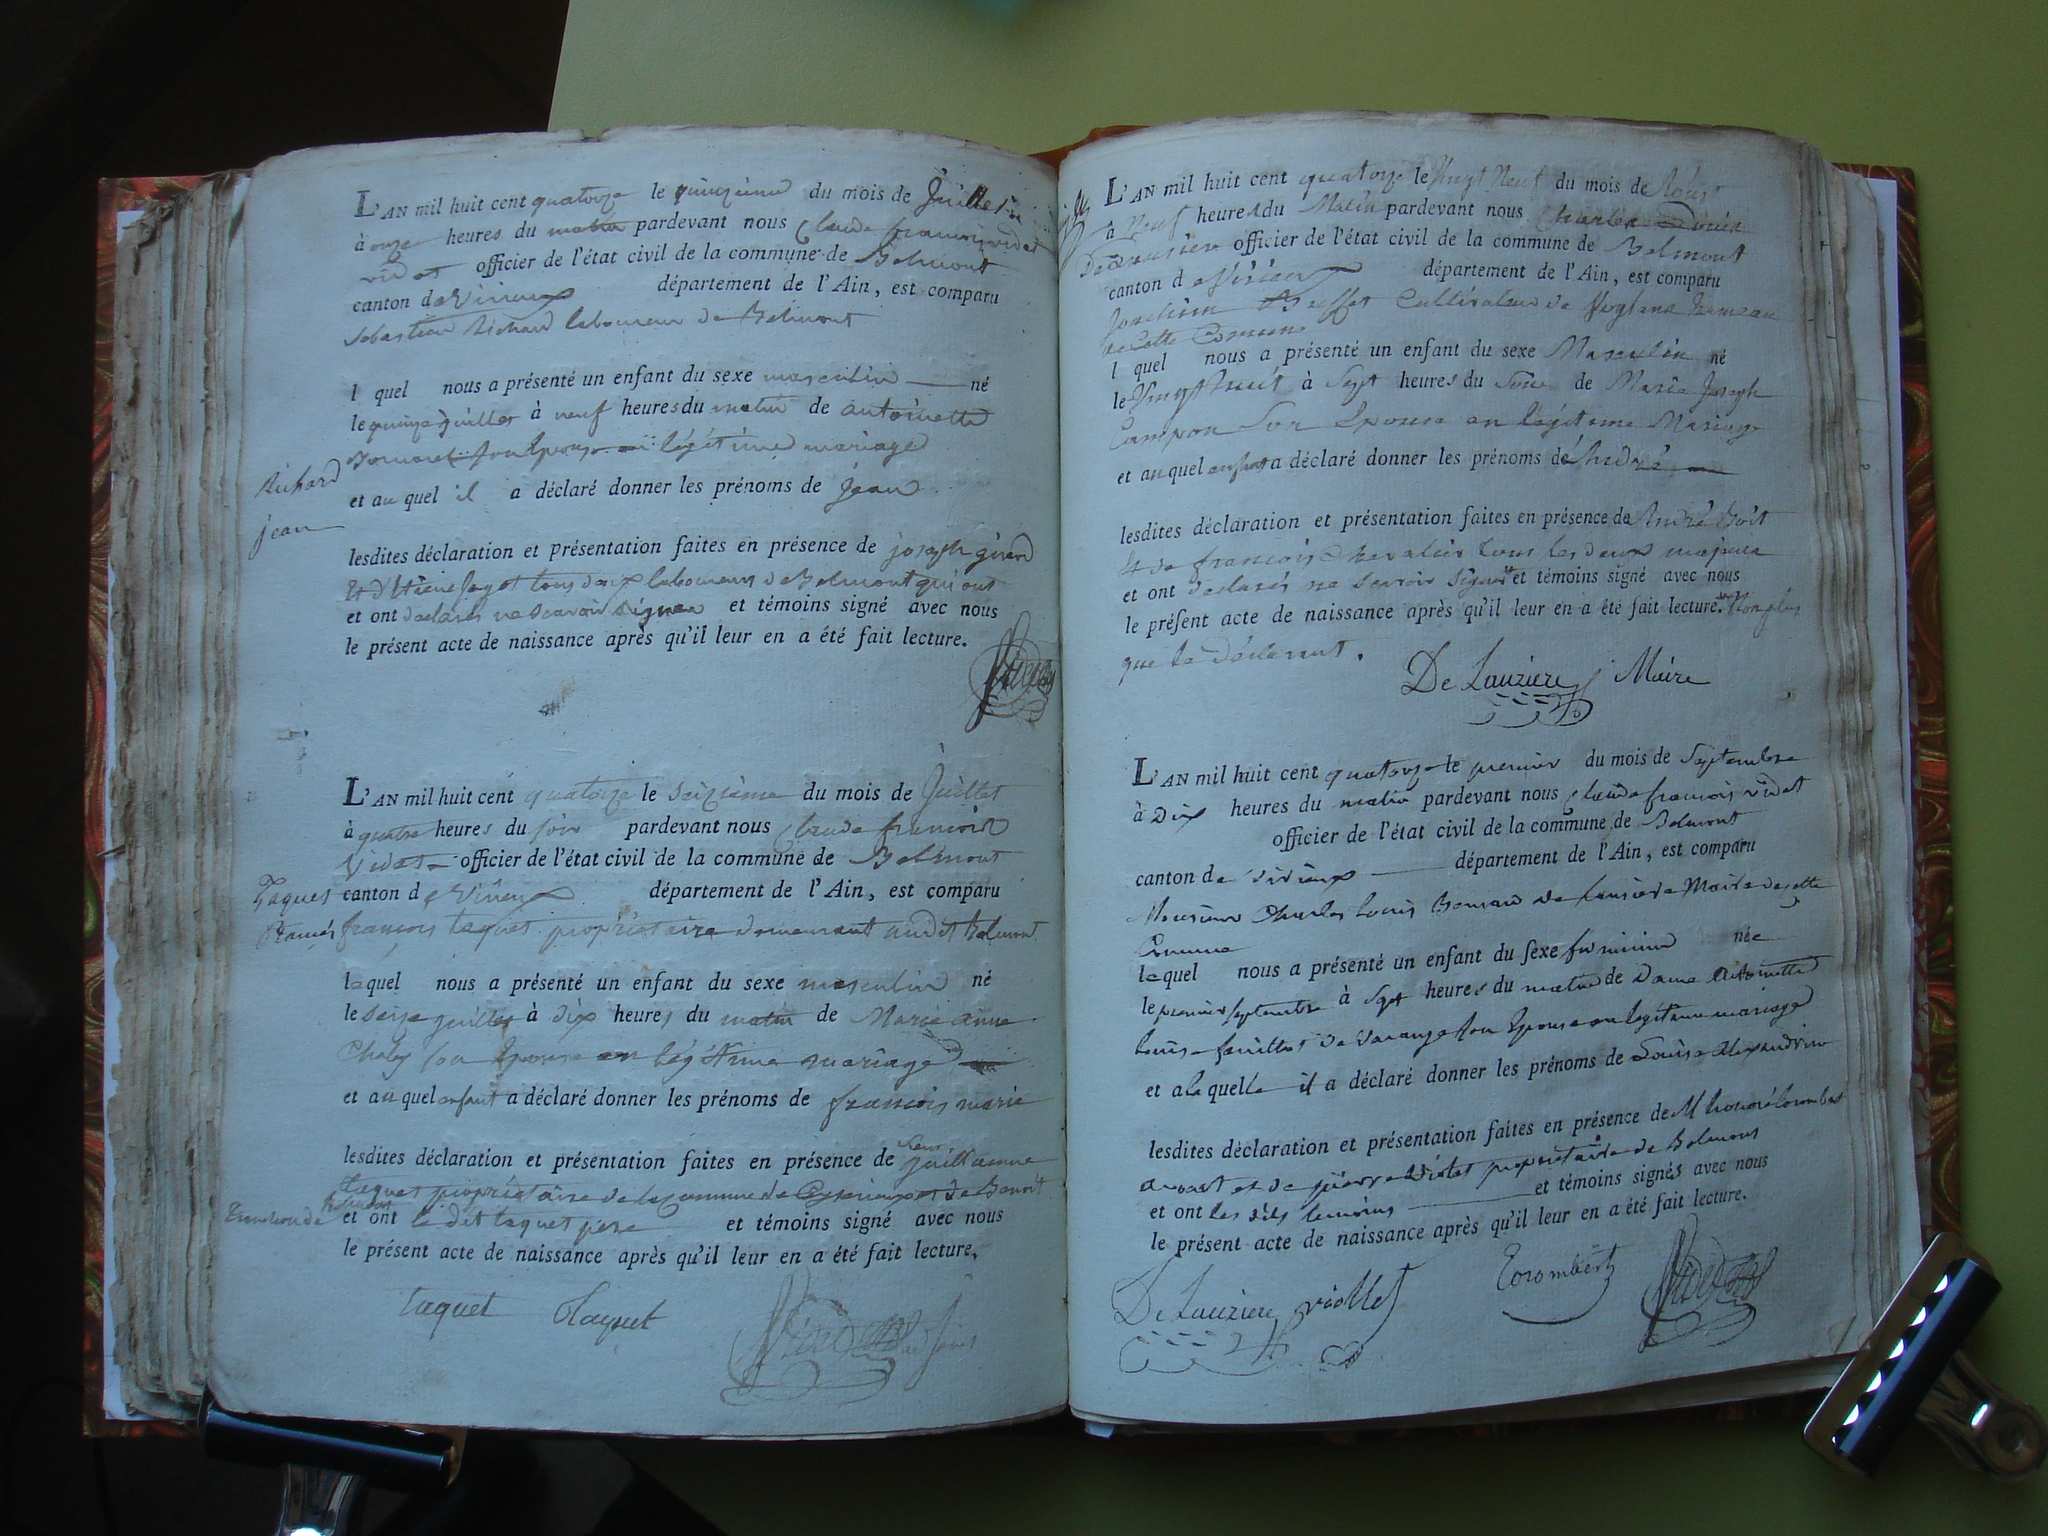 L'AN mil huit cent quatorze le quinzieme du mois de Juillet
à onze heures du matin pardevant nous Claude francois videt
officier de l'état civil de la commune de Belmont
canton de Virieux département de l'Ain, est comparu
Sebastien Richard laboureur de Belmont
l quel nous a présenté un enfant du sexe masculin né
le quinze juillet à neuf heures du matin de antoinette
son Epouse en légitime mariage
Richard
et au quel il a déclaré donner les prénoms de Jean
jean
lesdites déclaration et présentation faites en présence de joseph girard
et d'Etiene tous deux laboureurs de Belmont qui ont
et ont declarés ne scavoir signer et témoins signé avec nous
le présent acte de naissance après qu'il leur en a été fait lecture.
L'AN mil huit cent quatorze le seizieme du mois de Juillet
à quatre heures du soir pardevant nous Claude francois
Videt officier de l'état civil de la commune de Belmont
Taquet canton de Virieux département de l'Ain, est comparu
francois taquet propriétaire demeurant audit Belmont
lequel nous a présenté un enfant du sexe masculin né
le seize juillet à dix heures du matin de Marie anne
Chaley son Epouse en légitime mariage
et au quel enfant a déclaré donner les prénoms de francois marie
lesdites déclaration et présentation faites en présence de Guillaume
taquet propriétaire de la Commune de et de Benoit
et ont le dit taquet pere et témoins signé avec nous
le présent acte de naissance après qu'il leur en a été fait lecture.
taquet Taquet Videt
L'AN mil huit cent quatorze le Vingt Neuf du mois de Aoust
à Neuf heures du Matin pardevant nous Charles Louis
officier de l'état civil de la commune de Belmont
canton de Virieux département de l'Ain, est comparu
Joachim Cultivateur de hameau
de cette Comune
l quel nous a présenté un enfant du sexe Masculin né
le Vingt huit à Sept heures du Soir de Marie Joseph
Campon Son Epouse en legiteme Mariage
et au quel enfant a déclaré donner les prénoms de André
lesdites déclaration et présentation faites en présence de André
et de francois Chevalier tous les deux majeurs
et ont declarés ne scavoir signer et témoins signé avec nous
le présent acte de naissance après qu'il leur en a été fait lecture. Non plus
que le déclarant.
De Lauziere Maire
L'AN mil huit cent quatorze le premier du mois de Septembre
à Dix heures du matin pardevant nous Claude francois videt
officier de l'état civil de la commune de Belmont
canton de Virieux département de l'Ain, est comparu
Monsieur Charles Louis de Lausiere Maire de cette
Commune
lequel nous a présenté un enfant du sexe feminin née
le premier septembre à Sept heures du matin de Dame Antoinette
Louise de Varange son Epouse en légitime mariage
et a la quelle il a déclaré donner les prénoms de Louise Alexandrine
lesdites déclaration et présentation faites en présence de M honoré torombert
avocat et de pierre Violet propriétaire de Belmont
et ont les dits temoins et témoins signés avec nous
le présent acte de naissance après qu'il leur en a été fait lecture.
De Lauziere viollet Torombert Videt